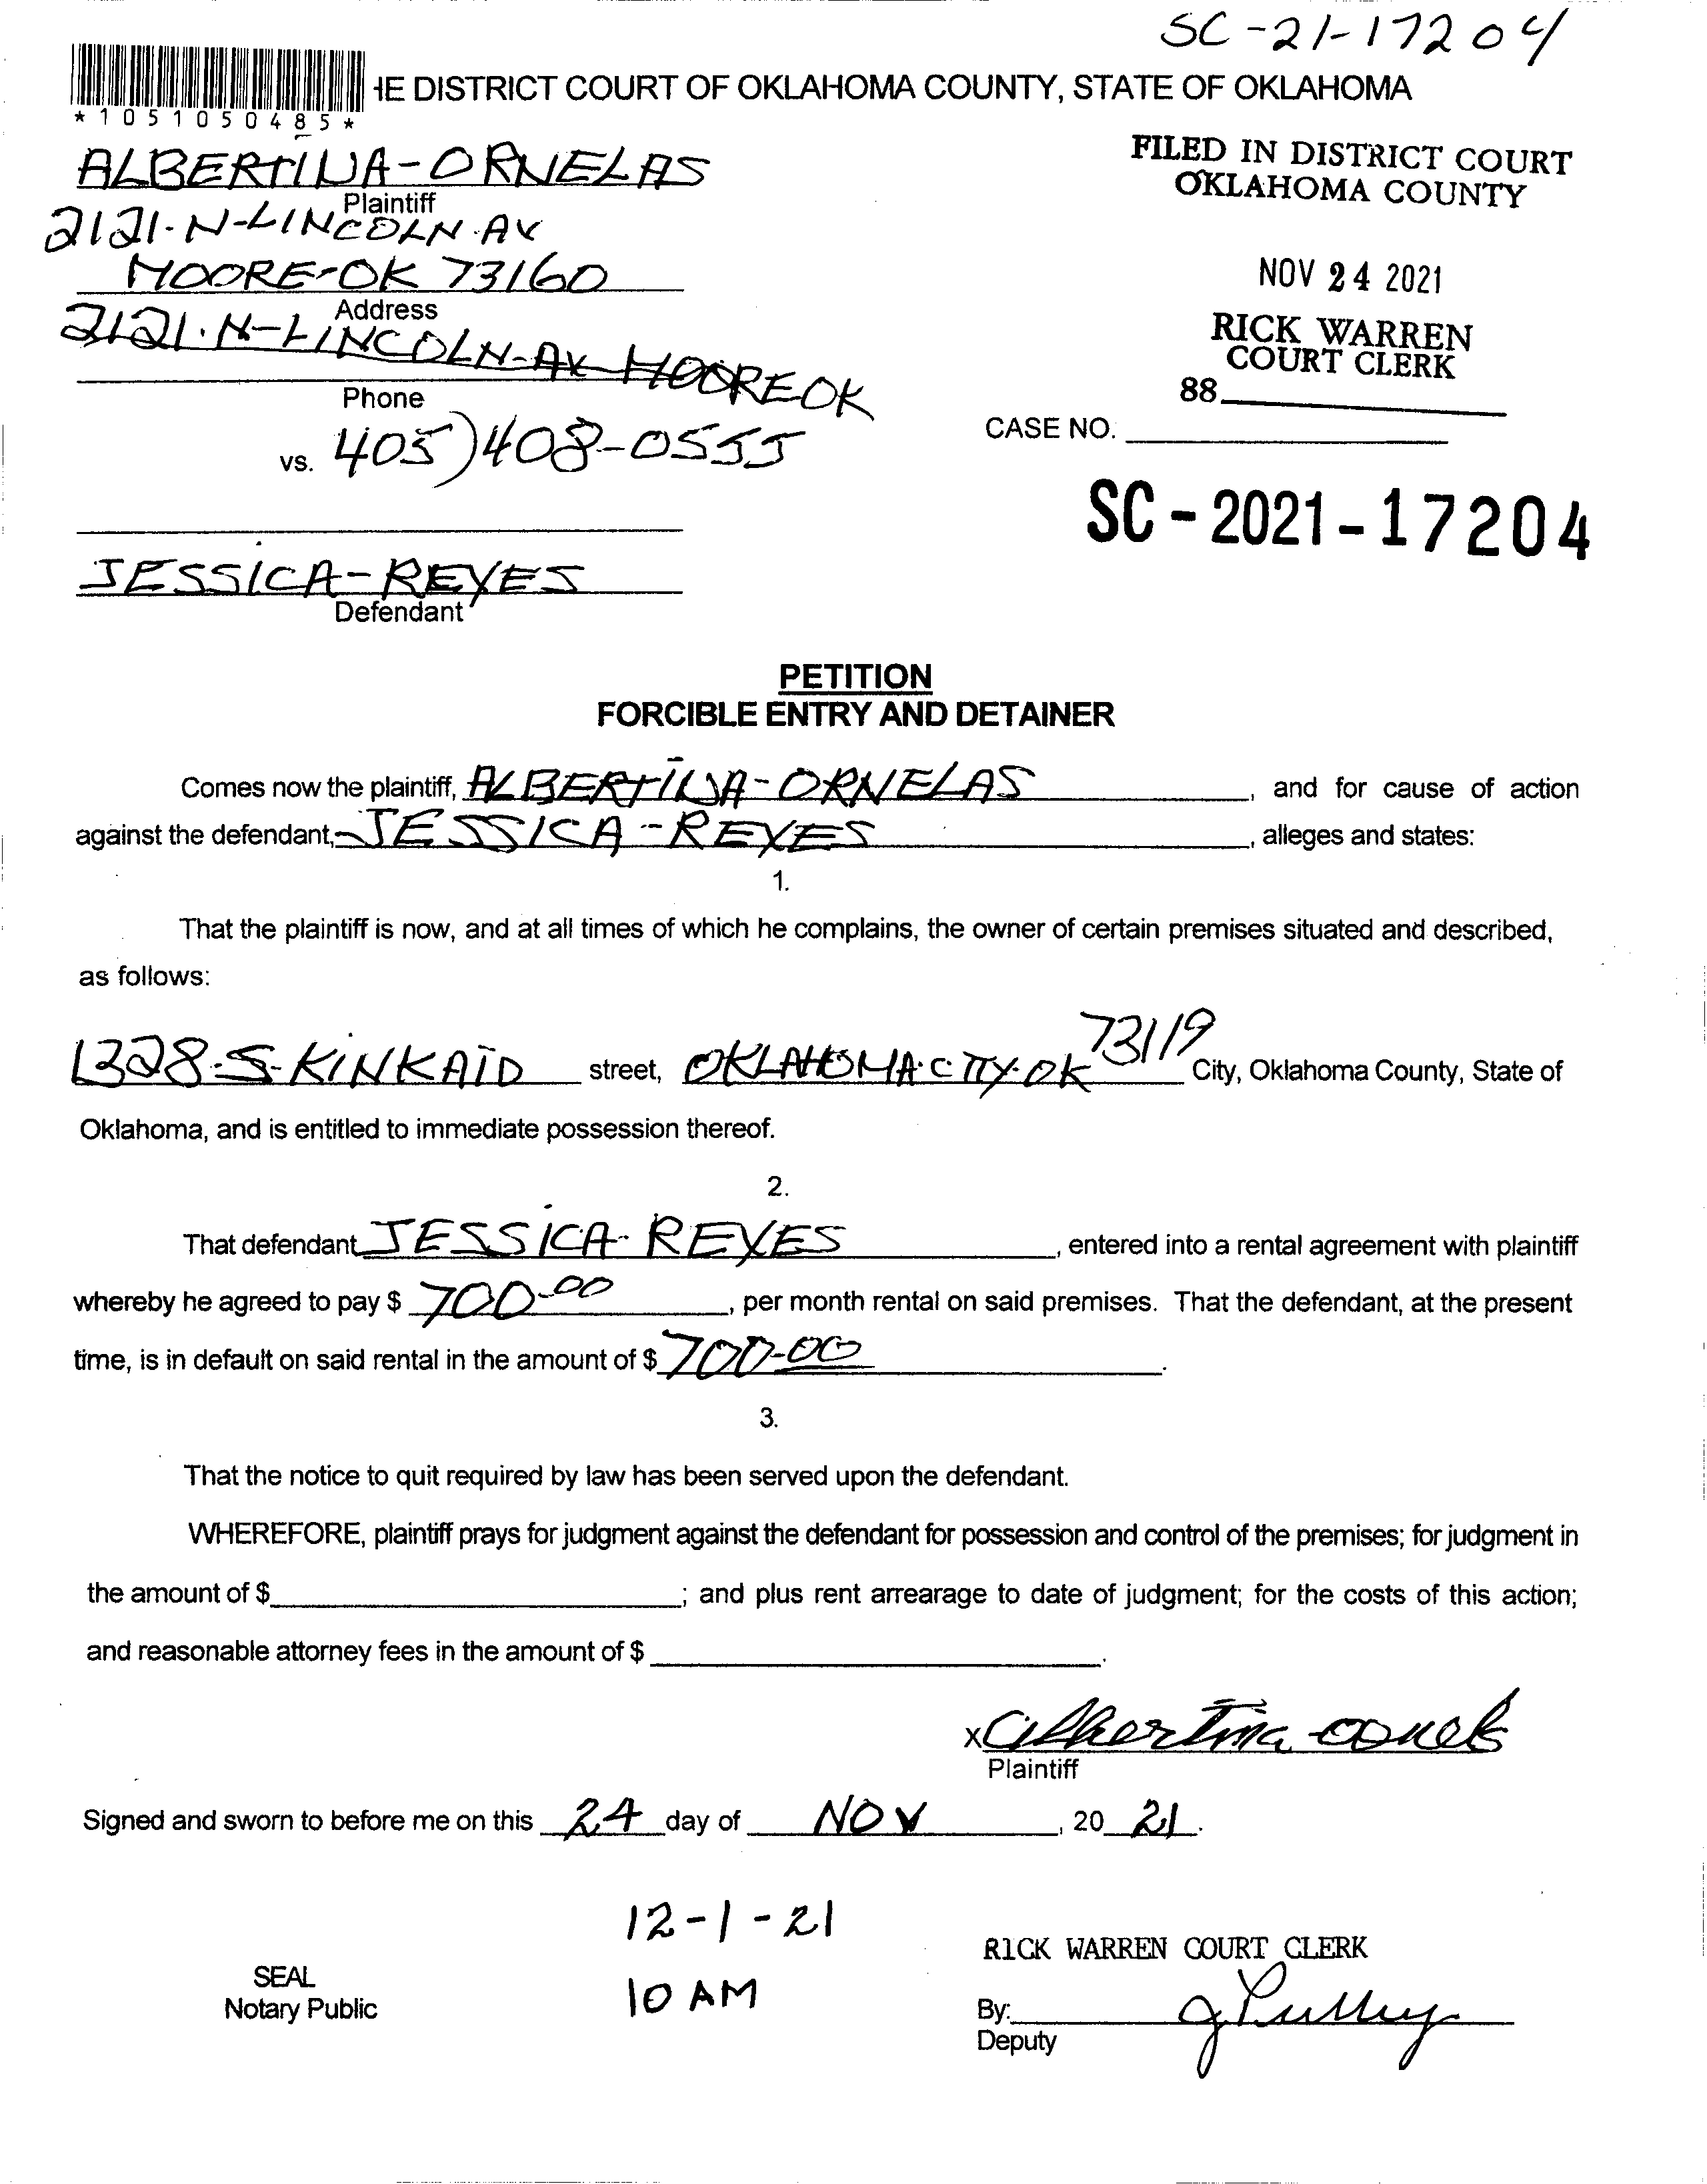 SC-21-17204
HE DISTRICT COURT OF OKLAHOMA COUNTY, STATE OF OKLAHOMA
*1051050485*
ALBERTINA-ORNELAS
Plaintiff
2121-N-LINCOLN-AV
MOORE-OK 73160
Address
2121-N-LINCOLN-AV MOORE OK
Phone
vs. 405)408-0555
JESSICA-REYES
Defendant
FILED IN DISTRICT COURT
OKLAHOMA COUNTY
NOV 24 2021
RICK WARREN
COURT CLERK
88
CASE NO.
SC-2021-17204
PETITION
FORCIBLE ENTRY AND DETAINER
Comes now the plaintiff, ALBERTINA-ORNELAS, and for cause of action
against the defendant, JESSICA-REYES, alleges and states:
1.
That the plaintiff is now, and at all times of which he complains, the owner of certain premises situated and described,
as follows:
1328-S-KINKAID street, OKLAHOMA-CITY-OK 73119 City, Oklahoma County, State of
Oklahoma, and is entitled to immediate possession thereof.
2.
That defendant JESSICA-REYES, entered into a rental agreement with plaintiff
whereby he agreed to pay $ 700-00, per month rental on said premises. That the defendant, at the present
time, is in default on said rental in the amount of $ 700-00.
3.
That the notice to quit required by law has been served upon the defendant.
WHEREFORE, plaintiff prays for judgment against the defendant for possession and control of the premises; for judgment in
the amount of $; and plus rent arrearage to date of judgment; for the costs of this action;
and reasonable attorney fees in the amount of $.
x Albertina
Plaintiff
Signed and sworn to before me on this 24 day of NOV, 20 21.
12-1-21
10 AM
SEAL
Notary Public
RICK WARREN COURT CLERK
By:
Deputy